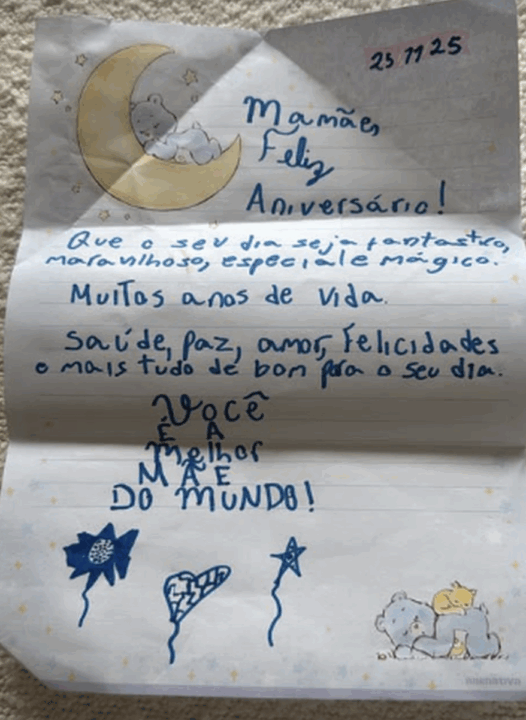 25 11 25
Mamãe,
Feliz
Aniversário!
Que o seu dia seja fantastico,
maravilhoso, especial e mágico.
Muitos anos de vida.
Saúde, paz, amor, felicidades
e mais tudo de bom pra o seu dia.
Você
É A
melhor
MÃE
DO MUNDO!